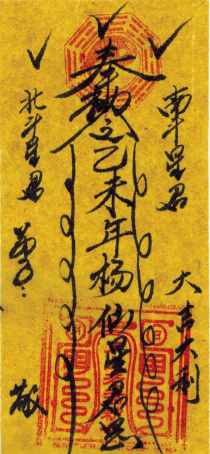 南斗星君
大吉大利
奉勅之乙未年杨仙星君
北斗星君
弟子
敬